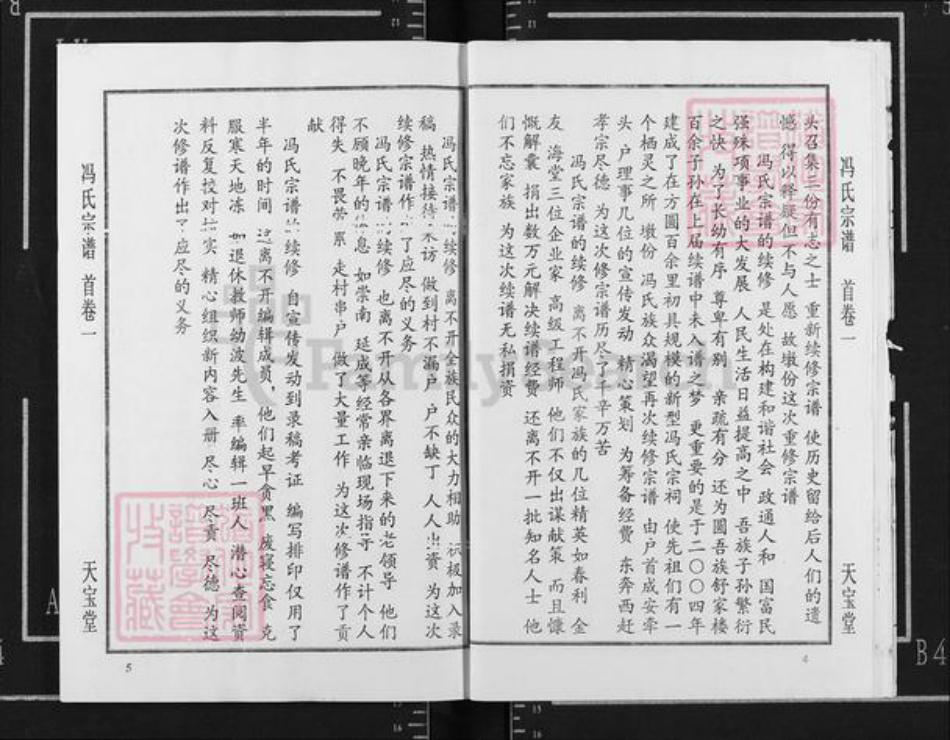 冯氏宗谱 首卷一 天宝堂
头召集二份有志之士 重新续修宗谱 使历史留给后人们的遗
憾 得以释疑但不与人愿 故墩份这次重修宗谱
冯氏宗谱的续修 是处在构建和谐社会 政通人和 国富民
强殊项事业的大发展 人民生活日益提高之中 吾族子孙繁衍
之快 为了长幼有序 尊卑有别 亲疏有分 还为圆吾族舒家楼
百余子孙在上届续谱中未入谱之梦 更重要的是于二〇〇四年
建成了在方圆百余里初具规模的新型冯氏宗祠 使先祖们有一
个栖灵之所 墩份 冯氏族众渴望再次续修宗谱 由户首成安牵
头 户理事几位的宣传发动 精心策划 为筹备经费 东奔西赶
孝宗尽德 为这次修宗谱历尽了千辛万苦
冯氏宗谱的续修 离不开冯氏家族的几位精英如春利 金
友 海堂三位企业家 高级工程师 他们不仅出谋献策 而且慷
慨解囊 捐出数万元解决续谱经费 还离不开一批知名人士 他
们不忘家族 为这次续谱无私捐资
4
冯氏宗谱 续修 离不开全族民众的大力相助 积极加入录
稿 热情接待来访 做到村不漏户 户不缺丁 人人出资 为这次
续修宗谱作出了应尽的义务
冯氏宗谱 续修 也离不开从各界离退下来的老领导 他们
不顾晚年的休息 如崇南 延成等经常亲临现场指导 不计个人
得失 不畏劳累 走村串户 做了大量工作 为这次修谱作了贡
献
冯氏宗谱的续修 自宣传发动到录稿考证 编写排印仅用了
半年的时间 这离不开编辑成员，他们起早贪黑 废寝忘食 克
服寒天地冻 如退休教师动波先生 率编辑一班人 潜心查阅资
料反复校对核实 精心组织新内容入册 尽心 尽责 尽德 为这
次修谱作出了应尽的义务
冯氏宗谱 首卷一 天宝堂
5
FamilySearch
B4